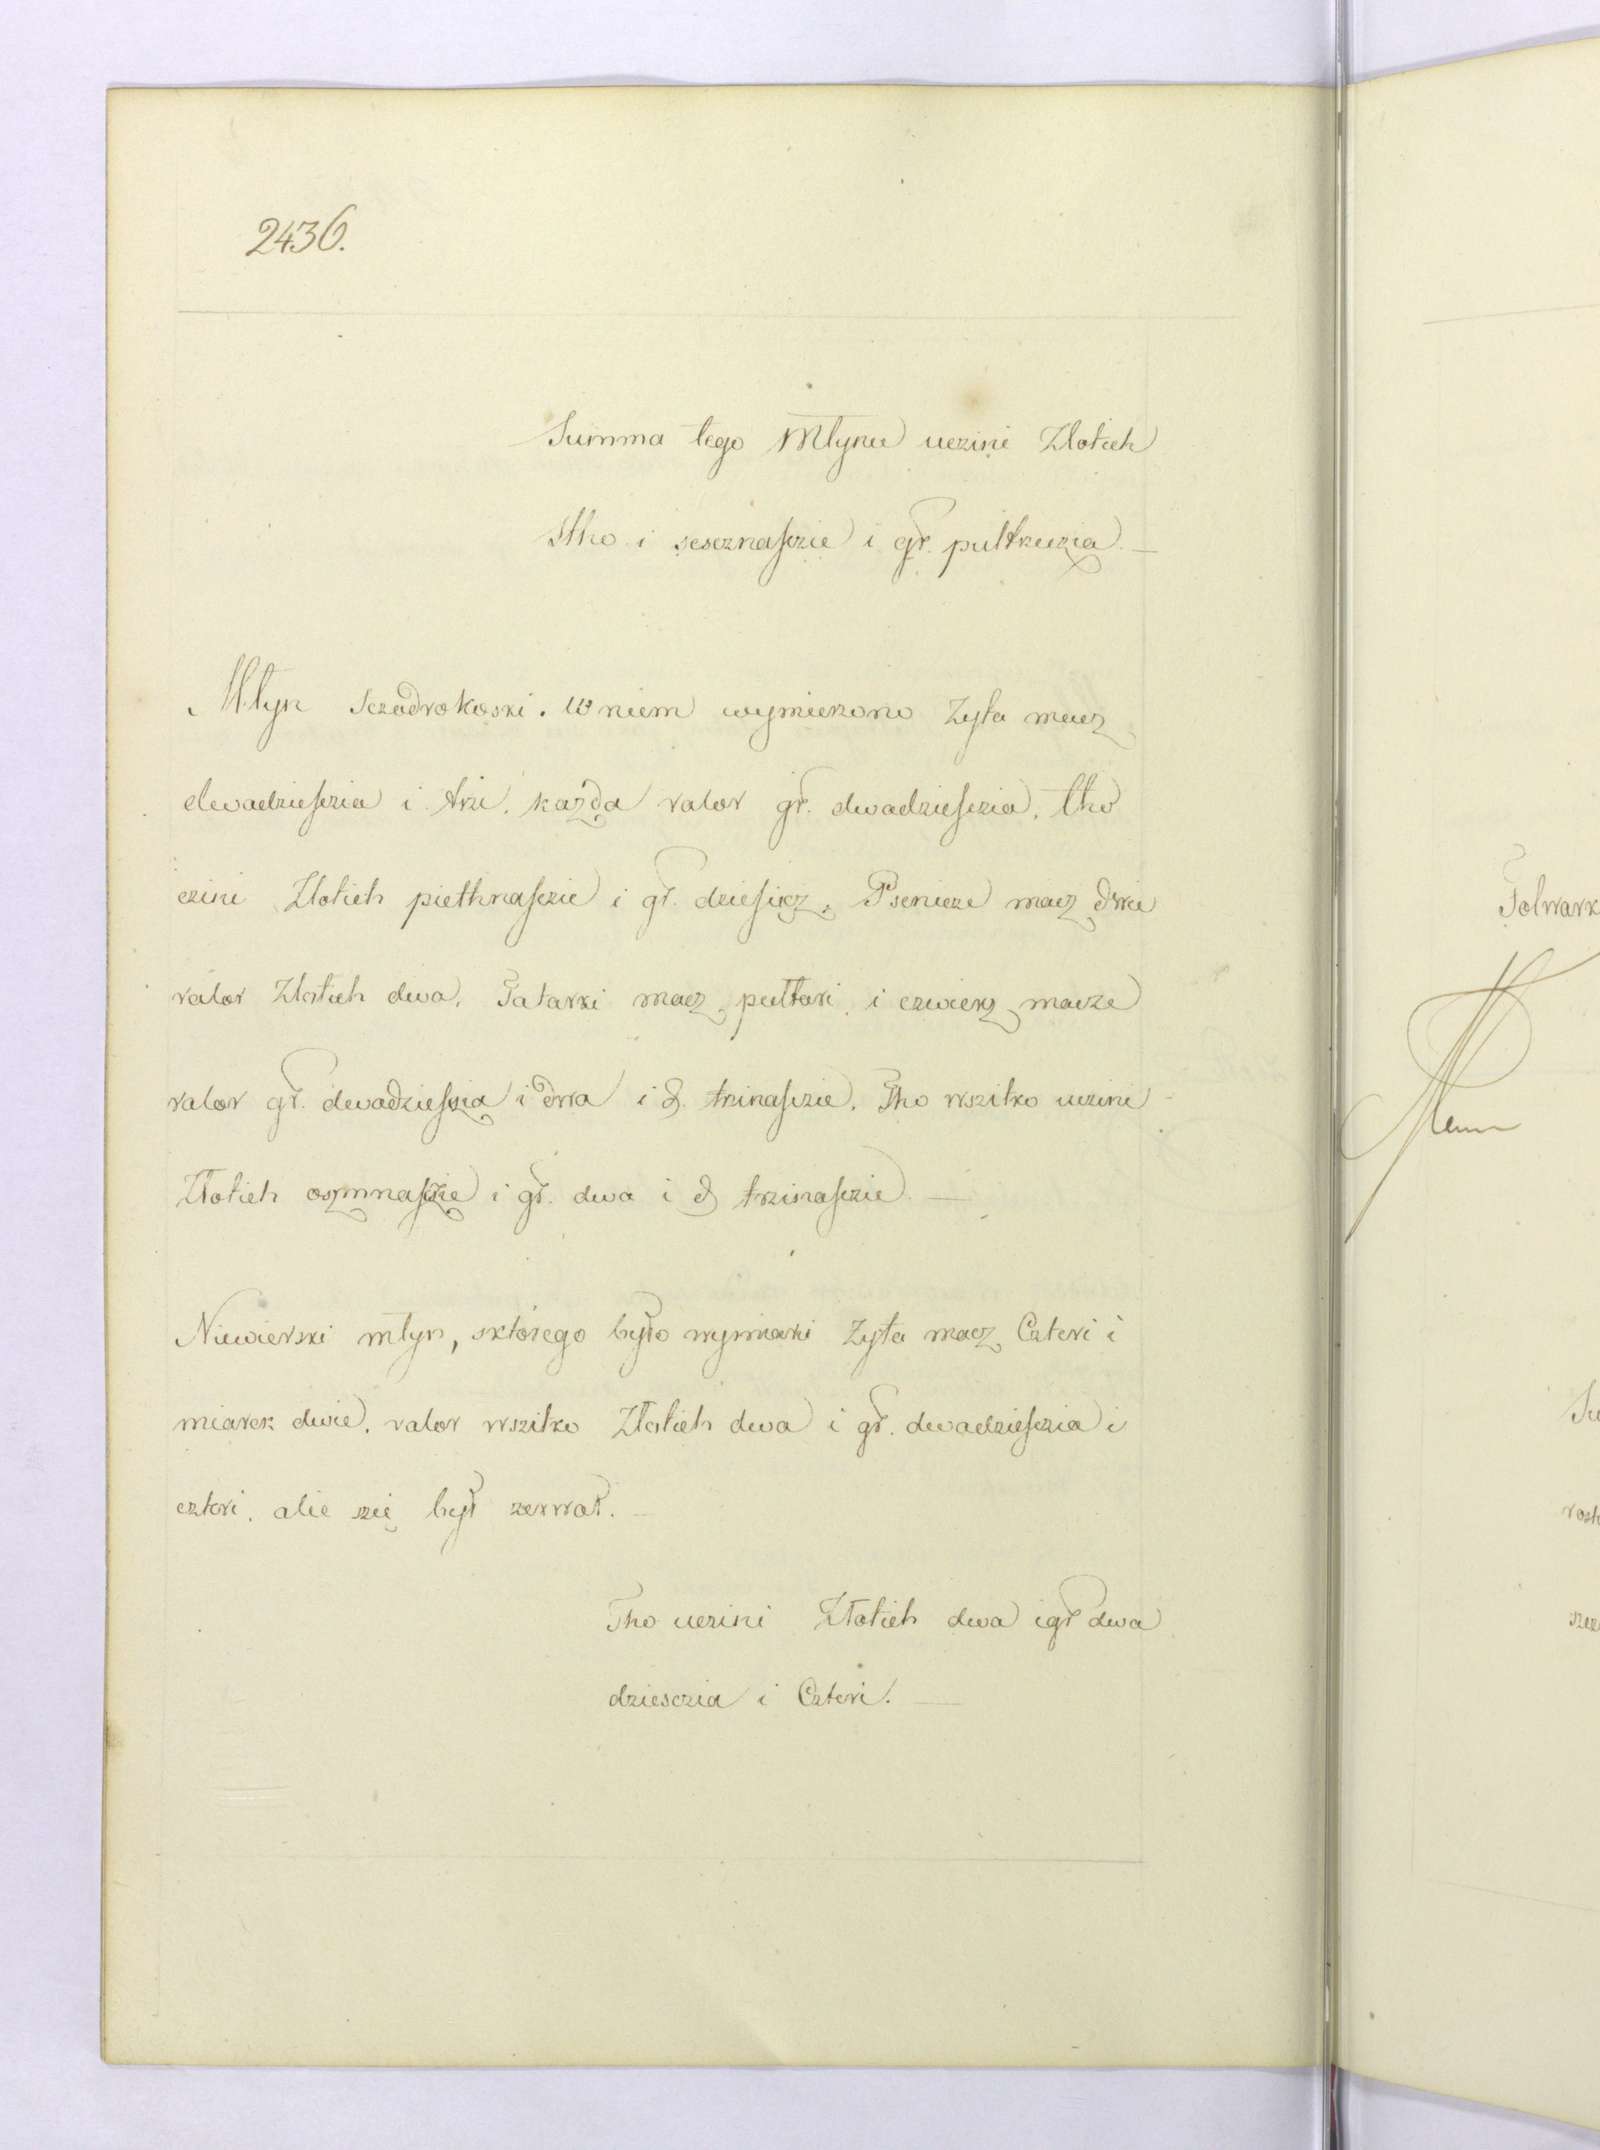 2436.
Summa tego Młynu uczini Złotich
Stho i sescznasczie i gr. pultrzeczia. —
Młyn Sczodrokoski. W niem wymierzono Zyta macz
dwadziesczia i trzi. każda valor gr. dwadziesczia. tho
czini Złotich piethnasczie i gr. dziesiącz. Psenicze macz dwie
valor Złotich dwa. Tatarki macz pultari i czwiercz macze
valor gr. dwadziesczia i dwa i d. trzinasczie. Tho wszitko uczini
Złotich oszmnasczie i gr. dwa i d trzinasczie. —
Niewierski młyn, sktórego było wymiarki Zyta macz Czteri i
miarek dwie. valor wszitko Złotich dwa i gr. dwadziesczia i
czteri. alie się był zerwał. —
Tho uczini Złotich dwa i gr dwa
dziesczia i Czteri. —
Folwark
Su